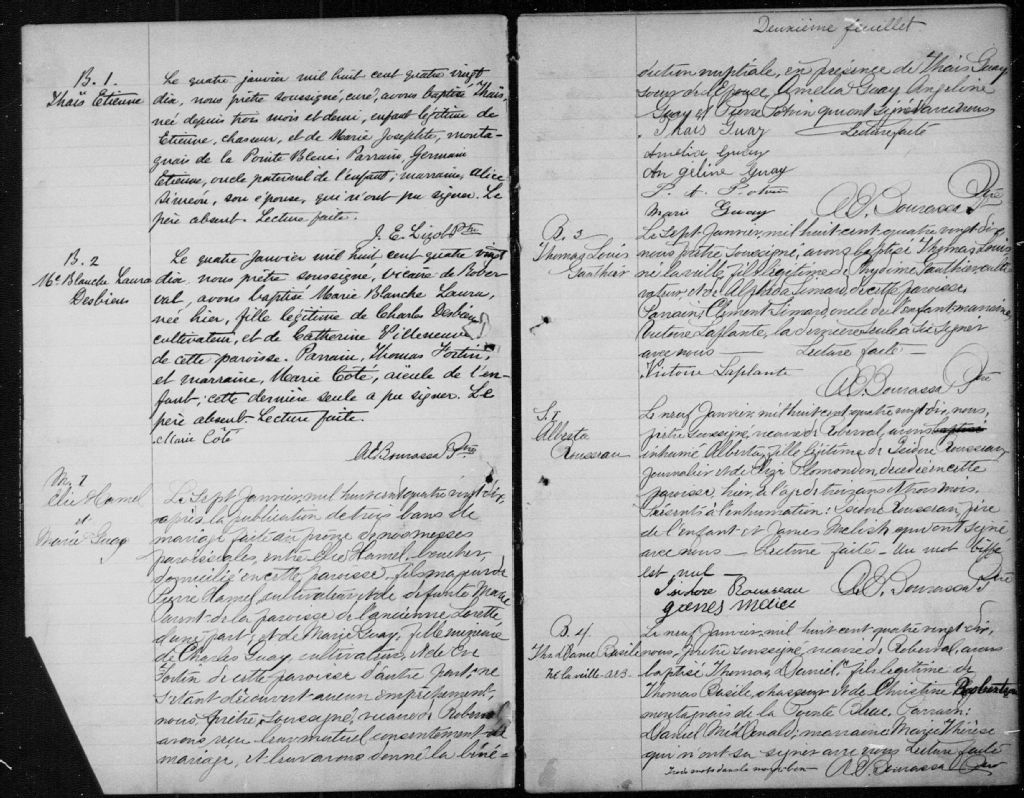 B. 1
Thaïs Etienne
Le quatre janvier mil huit cent quatre vingt
dix, nous prêtre soussigné, curé, avons baptisé Thaïs,
née depuis trois mois et demi, enfant légitime de
Etienne, chasseur, et de Marie Josephte, monta-
gnais de la Pointe Bleue. Parrain, Germain
Etienne, oncle paternel de l'enfant; marraine, Alice
Siméon, son épouse, qui n'ont pu signer. Le
père absent. Lecture faite.
J. E. Lizotte Ptre
B. 2
Me Blanche Laura
Desbiens
Le quatre janvier mil huit cent quatre vingt
dix nous prêtre soussigné, vicaire de Rober-
val, avons baptisé Marie Blanche Laura,
née hier, fille légitime de Charles Desbiens
cultivateur, et de Catherine Villeneuve
de cette paroisse. Parrain, Thomas Fortin,
et marraine, Marie Côté, aïeule de l'en-
fant; cette dernière seule a pu signer. Le
père absent. Lecture faite.
Marie Côté
A E Bourassa Ptre
Elie Hamel
et
Marie Guay
Le Sept Janvier, mil huit cent quatre vingt dix,
après la publication de trois bans de
mariage faite au prône de nos messes
paroissiales, entre Elie Hamel, boucher
domicilié en cette paroisse fils majeur de
Pierre Hamel, cultivateur et de défunte Marie
de la paroisse de l'ancienne Lorette,
d'une part; et de Marie Guay, fille mineure
de Charles Guay, cultivateur, et de
Fortin de cette paroisse d'autre part; ne
s'étant découvert aucun empêchement,
nous, prêtre, soussigné, vicaire de Roberval
avons reçu leur mutuel consentement de
mariage, et leur avons donné la béné-
Deuxième feuillet
diction nuptiale, en présence de Thaïs Guay
soeur de l'épouse, Amelia Guay Angeline
Guay et Pierre Potvin qui ont signé avec nous
Lecture faite
Thaïs Guay
Amelia Guay
Angéline Guay
P. A. Potvin
Marie Guay
A E. Bourassa Ptre
B. 3
Thomas Louis
Gauthier
Le Sept Janvier, mil huit cent quatre vingt dix,
nous prêtre soussigné, avons baptisé Thomas Louis
né la veille, fils légitime de Onésime Gauthier, culti-
vateur, et de Alphéda Simard, de cette paroisse,
Parrain, Clément Simard, oncle de l'enfant, marraine,
Victoire Laplante, la dernière seule a su signer
avec nous — Lecture faite —
Victoire Laplante
A E. Bourassa Ptre
S. 1
Alberta
Rousseau
Le neuf Janvier, mil huit cent quatre vingt dix, nous,
prêtre soussigné, vicaire de Roberval, avons baptisé
inhumé Alberta, fille légitime de Isidore Rousseau,
journalier et de Plomondon, décédée en cette
paroisse, hier, à l'âge de trois ans et trois mois.
Présents à l'inhumation: Isidore Rousseau, père
de l'enfant et James qui ont signé
avec nous — Lecture faite — Un mot biffé
est nul —
Isidore Rousseau
A E. Bourassa Ptre
B. 4
Ths Daniel Basile
né la veille. A E B.
Le neuf Janvier, mil huit cent quatre vingt dix,
nous, prêtre soussigné, vicaire de Roberval, avons
baptisé Thomas Daniel, fils légitime de
Thomas Basile, chasseur et de Christine Robertson
montagnais de la Pointe Bleue. Parrain:
Daniel McDonald; marraine Marie Thérèse
qui n'ont su signer avec nous Lecture faite
Trois mots dans la marge bon
A E Bourassa Ptre